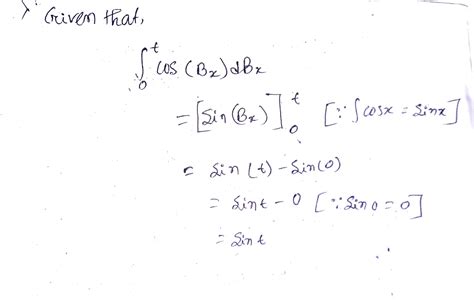 > Given that,
∫₀ᵗ cos (Bx) dBx
= [Sin (Bx)]₀ᵗ [∵ ∫ cosx = Sinx]
= Sin (t) - Sin(0)
= Sint - 0 [∵ Sin 0 = 0]
= Sint